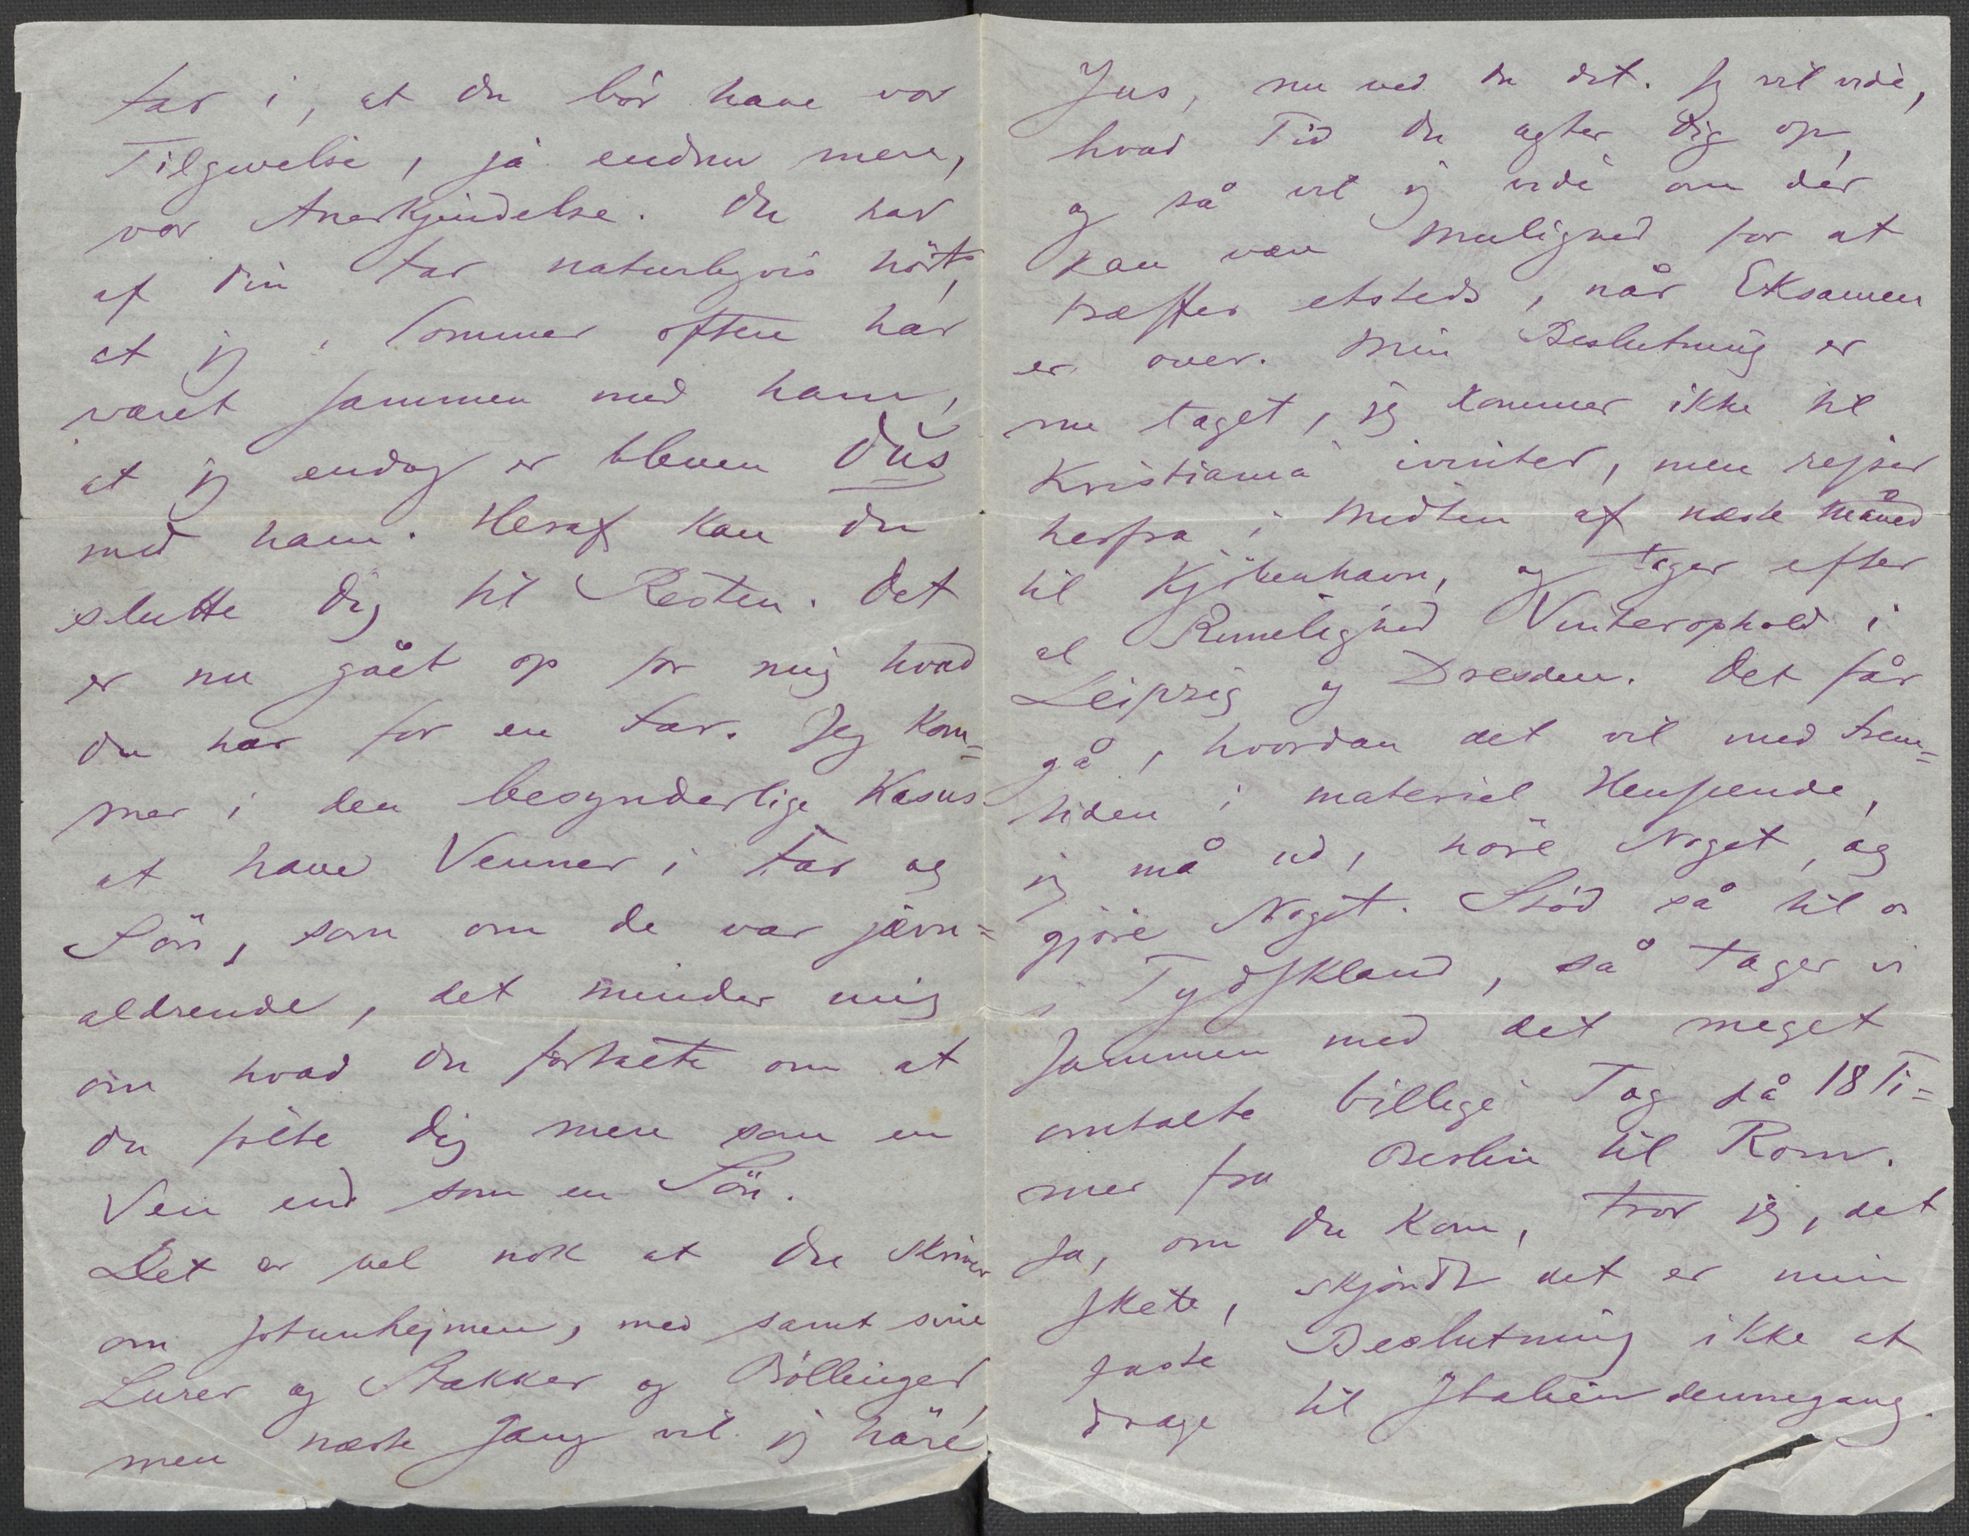 Far i, at du bör have vor
Tilgivelse, ja endnu mere,
vor Anerkjendelse. Du har
af din Far naturligvis hört,
at jeg i Sommer oftere har
været sammen med ham,
at jeg endog er bleven dus
med ham. Heraf kan du
slutte dig til Resten. Det
er nu gået op for mig hvad
du har for en Far. Jeg kom=
mer i den besynderlige Kasus
at have Venner i Far og
Sön, som om de var jævn=
aldrende, det minder mig
om hvad du fortalte om at
du fölte dig mere som en
Ven end som en Sön.
Det er vel nok at du skriver
om Jotunhejmen, med samt sine
Lurer og Stakker og Böllinger,
men næste Gang vil jeg höre
Jus, nu ved du det. Jeg vil vide,
hvad Tid du agter dig op,
og så vil jeg vide om der
kan være Mulighed for at
træffes etsteds, når Eksamen
er over. Min Beslutning er
nu taget, jeg kommer ikke til
Kristiania ivinter, men rejser
herfra i Midten af næste Måned
til Kjöbenhavn, og tager efter
al Rimelighed Vinterophold i
Leipzig og Dresden. Det får
gå, hvordan det vil med Frem=
tiden i materiel Henseende,
jeg må ud, höre Noget, og
gjöre Noget. Stöd så til os
i Tydskland, så tager vi
sammen med det meget
omtalte billige Tog på 18 Ti=
mer fra Berlin til Rom.
Ja, om du kom, tror jeg, det
skete, skjöndt det er min
faste Beslutning ikke at
drage til Italien dennegang.